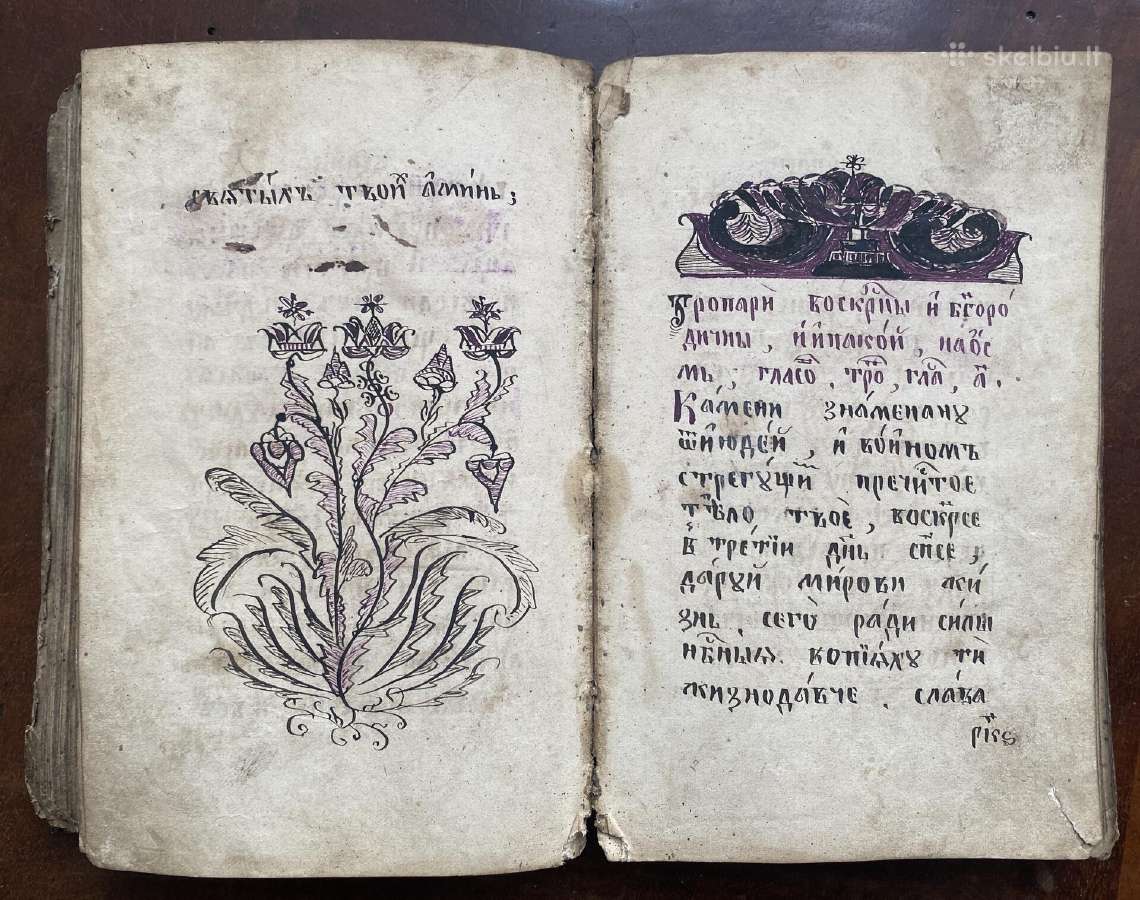 skelbiu.lt
свѧты́хъ твои́х а҆ми́нь;
Тропарѝ воскрⷭ҇ны и҆ бг҃оро́
дичны, и҆ и҆пакои́, на ѻ҆с
мь, гласѡⷡ, трⷪ҇, глⷭ҇а, а҃.
Ка́мени зна́менанꙋ
ѿ и҆юде́й, и҆ во́иномъ
стрегꙋ́щиⷨ пречⷭ҇тое
тѣ́ло твоѐ, воскр҃се
в̾ тре́тїи дн҃ь сп҃се,
да́рꙋй ми́рови жи
знь. сегѡ̀ ра́ди си́лы
нбⷭ҇ныѧ. вопїѧ́хꙋ тѝ
жизнода́вче. сла́ва
рк҃ѕ